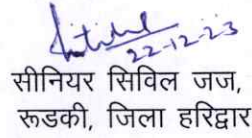 22-12-23
सीनियर सिविल जज,
रूडकी, जिला हरिद्वार